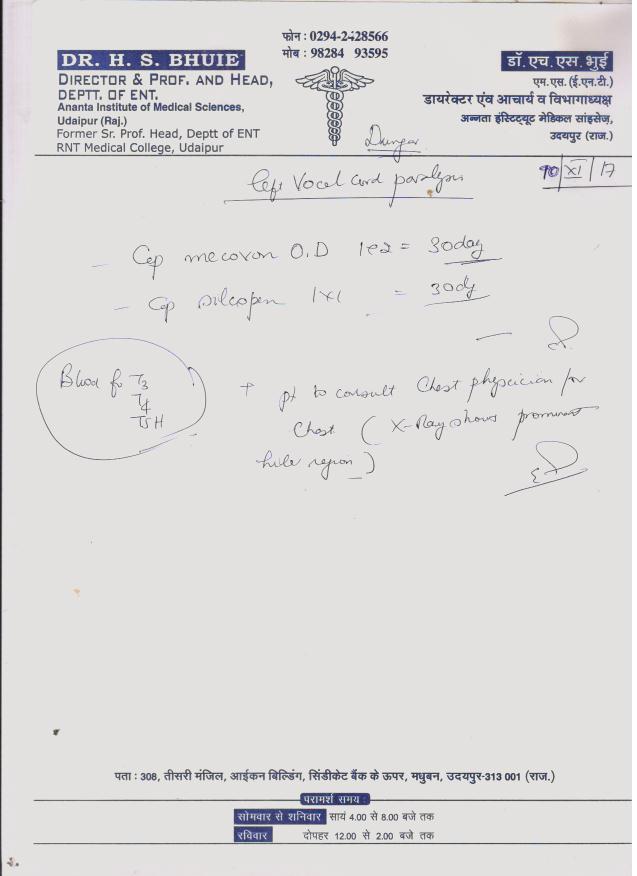 फोन : 0294-2428566
मोब : 98284 93595
DR. H. S. BHUIE
DIRECTOR & PROF. AND HEAD,
DEPTT. OF ENT.
Ananta Institute of Medical Sciences,
Udaipur (Raj.)
Former Sr. Prof. Head, Deptt of ENT
RNT Medical College, Udaipur
डॉ. एच. एस. भुई
एम.एस. (ई.एन.टी.)
डायरेक्टर एंव आचार्य व विभागाध्यक्ष
अन्नता इंस्टिट्यूट मेडिकल सांइसेज,
उदयपुर (राज.)
/XI/17
left Vocal Cord paralysis
- Cap mecovon O.D = 30 day
- Cap 1x1 = 30 dy
Blood for T3
T4
TSH
+ pt to consult Chest physician for
Chest (X-Ray shows prominent
hile region)
पता : 308, तीसरी मंजिल, आईकन बिल्डिंग, सिंडीकेट बैंक के ऊपर, मधुबन, उदयपुर-313 001 (राज.)
परामर्श समय :
सोमवार से शनिवार सायं 4.00 से 8.00 बजे तक
रविवार दोपहर 12.00 से 2.00 बजे तक